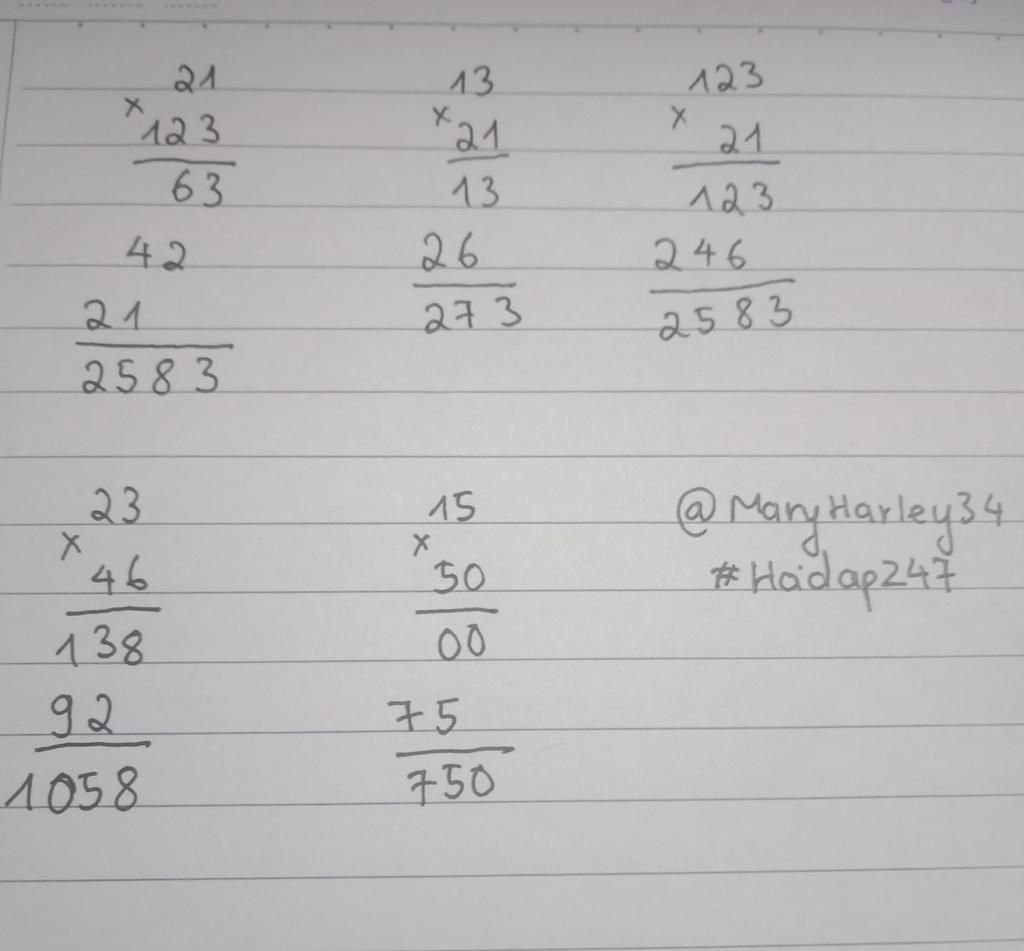 21 13 123
× 123 × 21 × 21
63 13 123
42 26 246
21 273 2583
2583
23 15 @MaryHarley34
× 46 × 50 #Haidap247
138 00
92 75
1058 750